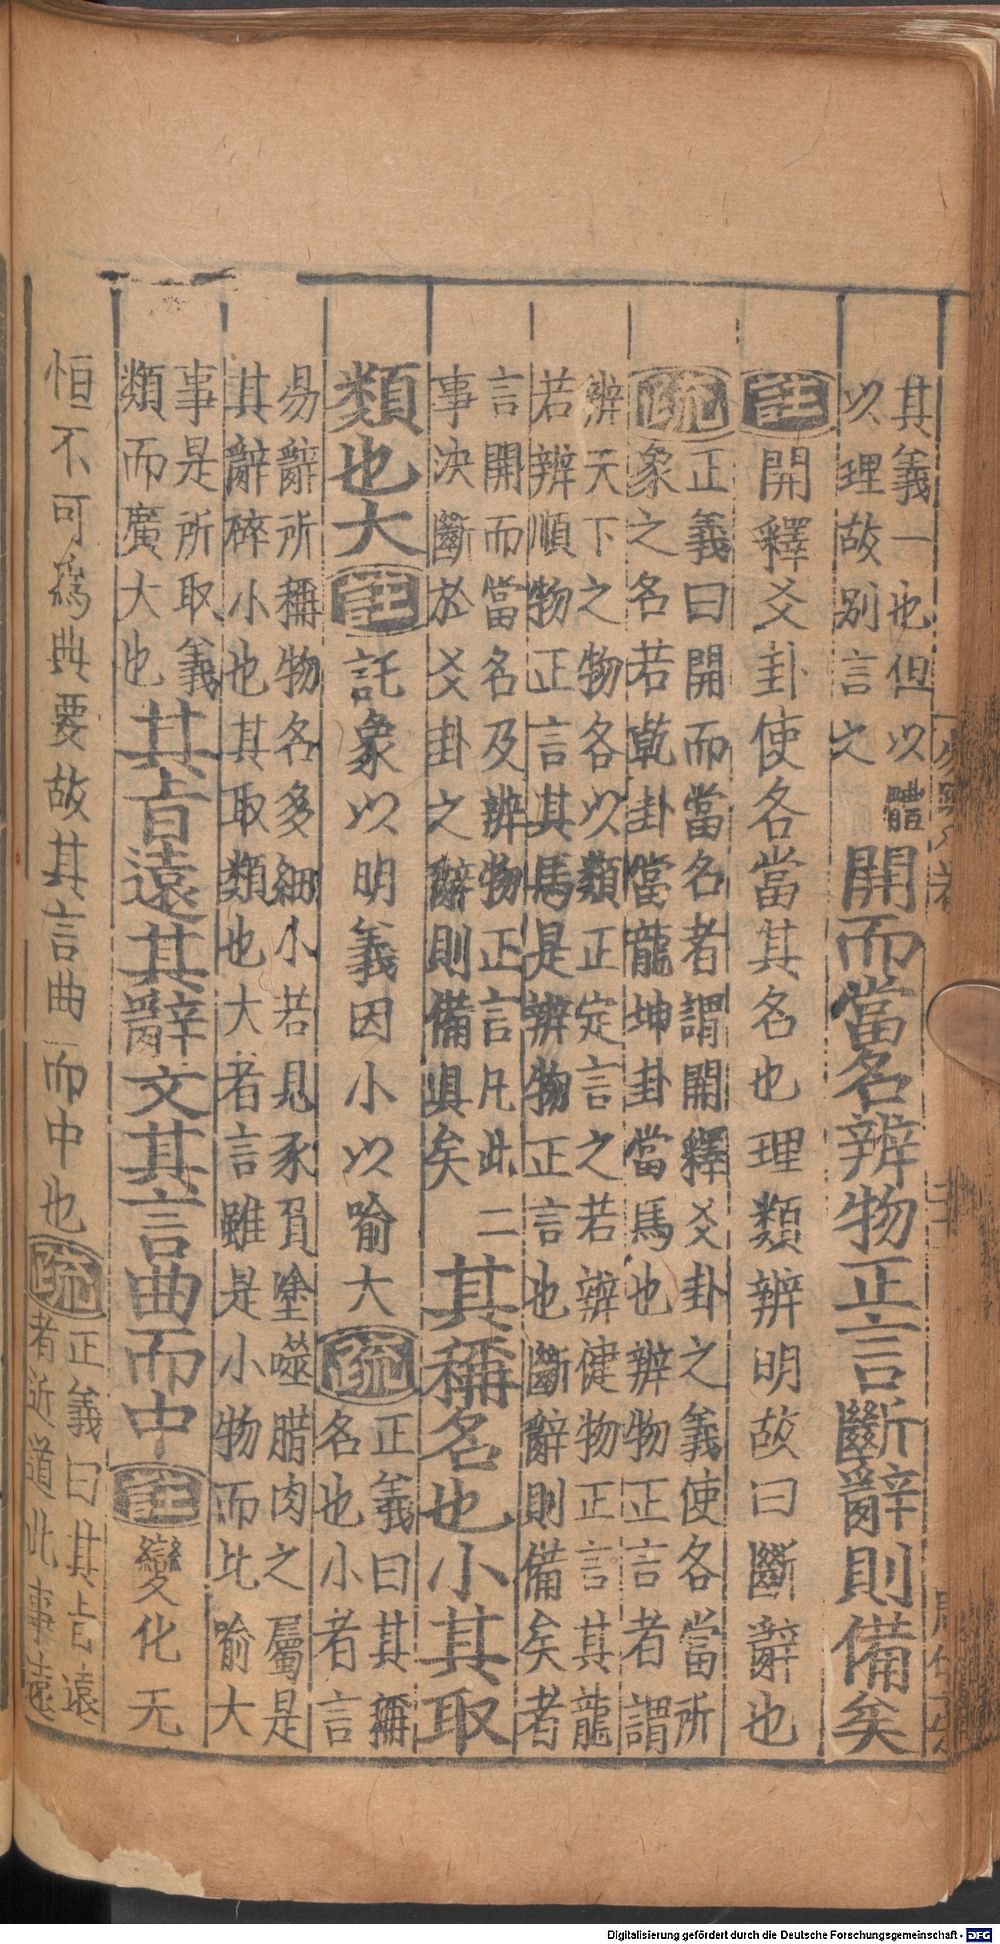 其義一也但以體
以理故别言之
開而當名辨物正言斷辭則備矣
註開釋爻卦使各當其名也理類辨明故曰斷辭也
疏正義曰開而當名者謂開釋爻卦之義使各當所
象之名若乾卦當龍坤卦當馬也辨物正言者謂
辨天下之物各以類正定言之若辨健物正言其龍
若辨順物正言其馬是辨物正言也斷辭則備矣者
言開而當名及辨物正言凡此二
事決斷於爻卦之辭則備具矣
其稱名也小其取
類也大註託象以明義因小以喻大疏正義曰其稱
名也小者言
易辭所稱物名多細小若見豕負塗噬腊肉之屬是
其辭碎小也其取類也大者言雖是小物而比喻大
事是所取義
類而廣大也
其旨遠其辭文其言曲而中註變化无
恒不可爲典要故其言曲而中也疏正義曰其旨遠
者近道此事遠
Digitalisierung gefördert durch die Deutsche Forschungsgemeinschaft - DFG